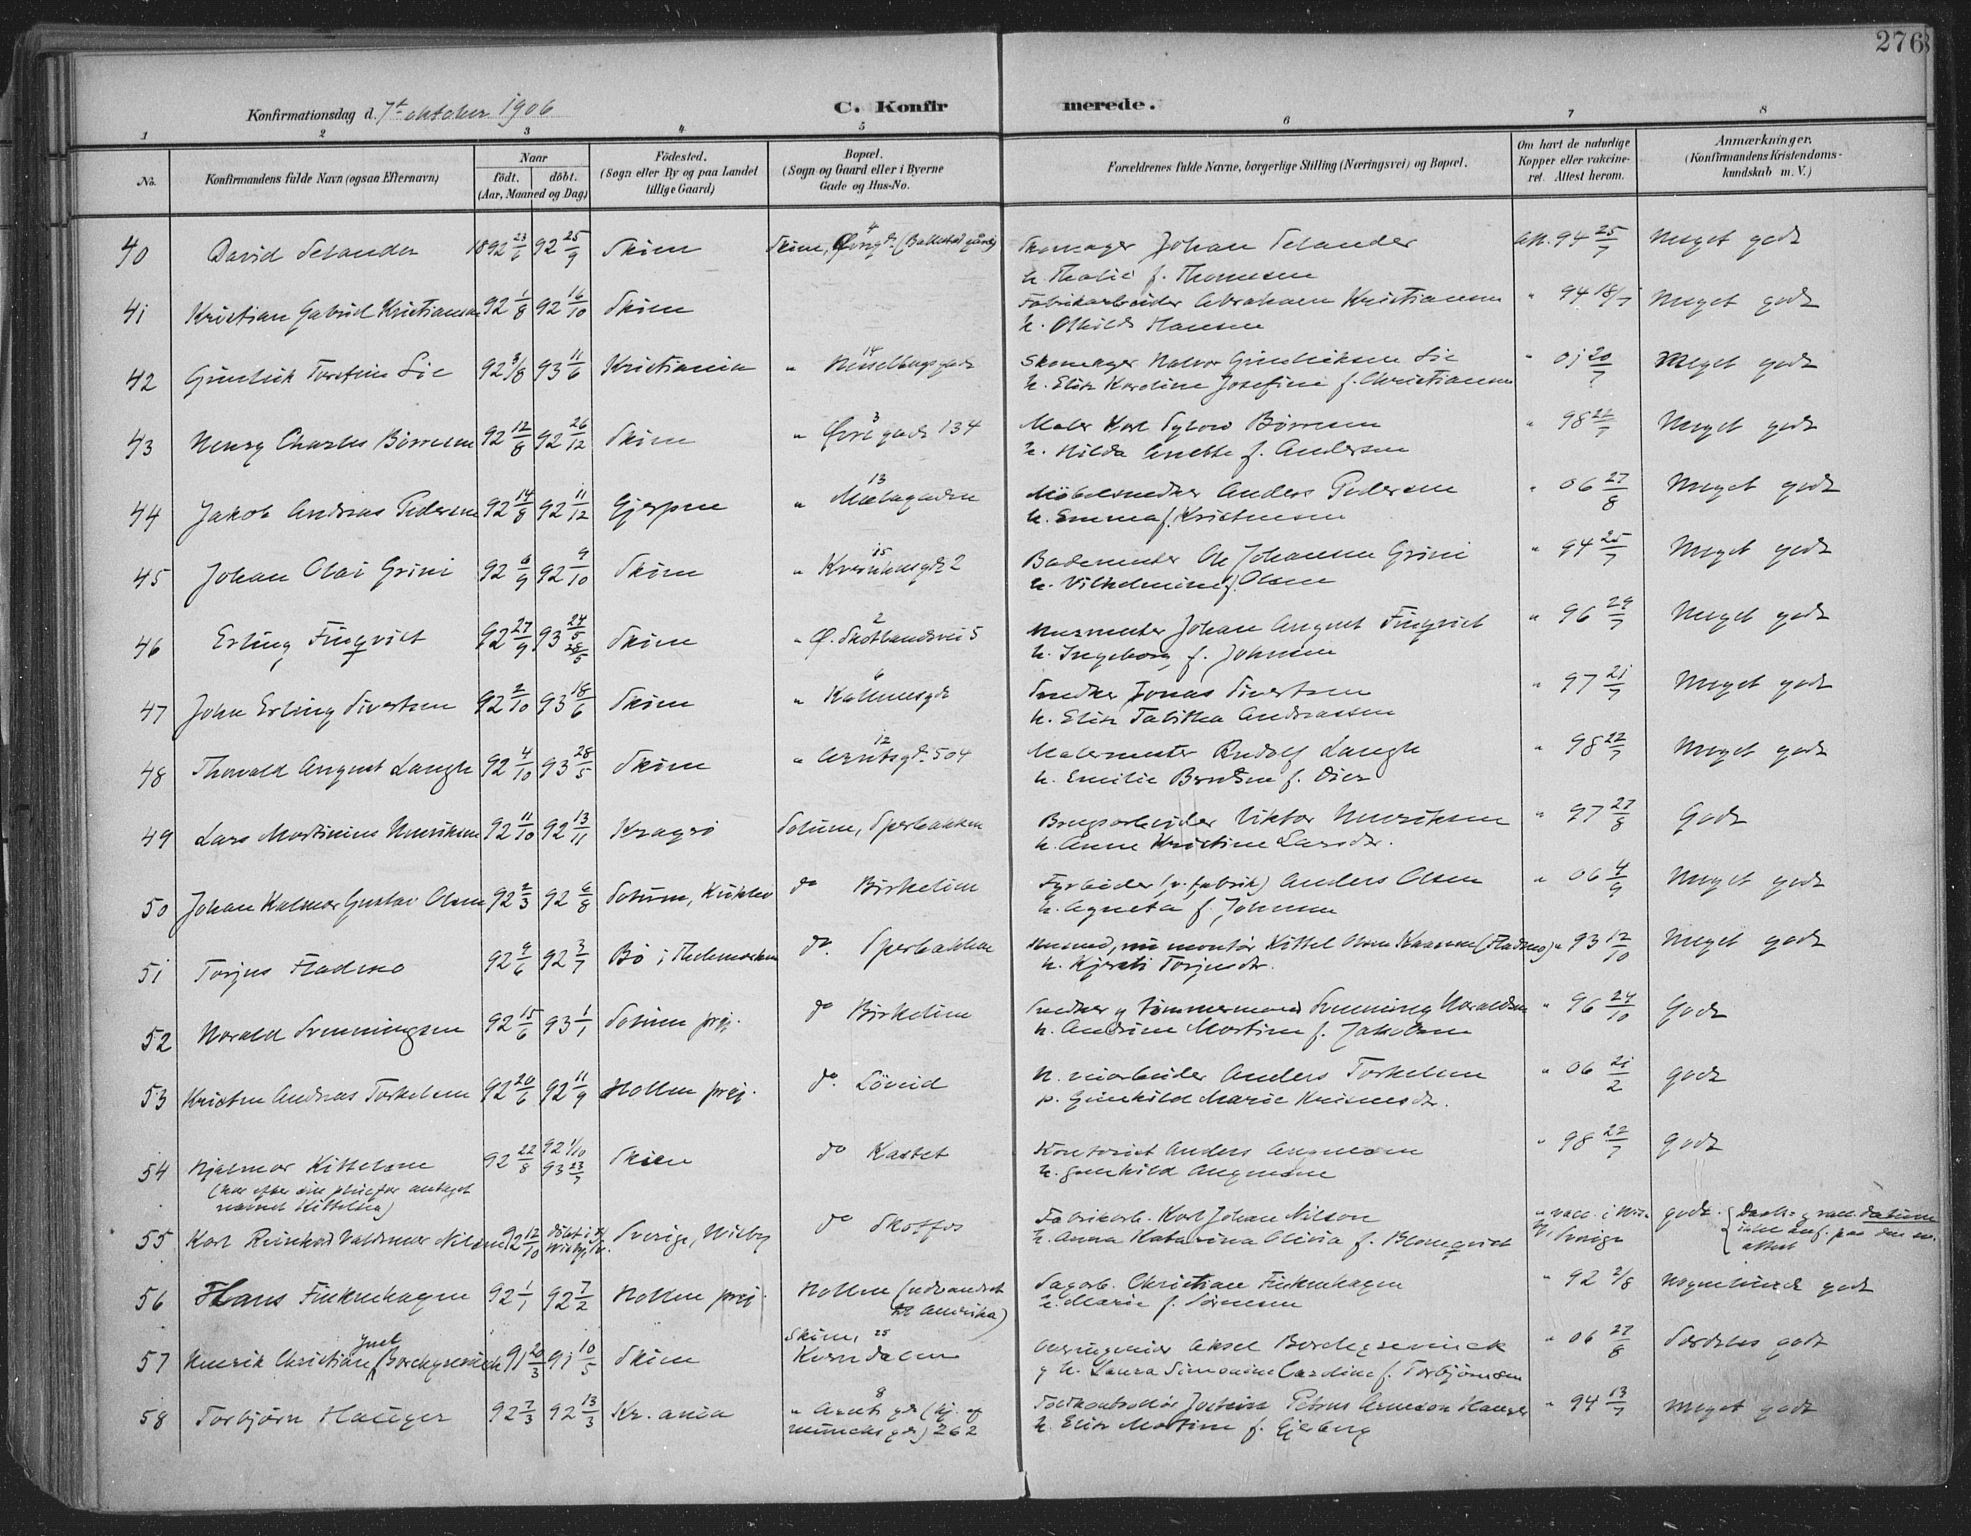 276
Konfirmationsdag d. 7de oktober 1906
C. Konfirmerede.
1 2 3 4 5 6 7 8
No.
Konfirmandens fulde Navn (ogsaa Efternavn)
Naar
født. døbt.
(Aar, Maaned og Dag)
Fødested.
(Sogn eller By og paa Landet
tillige Gaard)
Bopæl.
(Sogn og Gaard eller i Byerne
Gade og Hus-No.
Forældrenes fulde Navne, borgerlige Stilling (Næringsvei) og Bopæl.
Om havt de naturlige
Kopper eller vakcine-
ret. Attest herom.
Anmærkninger.
(Konfirmandens Kristendoms-
kundskab m. V.)
40 David Selander 1892 23/6 92 25/9 Skien Skien, 4 Skomager Johan Selander att. 94 25/7 Meget godt
h. Thalie f. Thomesen
41 Kristian Gabriel Kristiansen 92 1/8 92 16/10 Skien Fabrikarbeider Abraham Kristiansen " 94 18/7 Meget godt
h. Othilde Hansen
42 Gunleik Torstein Lie 92 3/8 93 11/6 Kristiania " 14 Hesselbergsgade Skomager Halvor Gunleiksen Lie " 01 20/7 Meget godt
h. Elise Karoline Josefine f. Christiansen
43 Henry Charles Børresen 92 12/8 92 26/12 Skien " 3 Øvregade 134 Maler Karl Sylow Børresen " 98 22/7 Meget godt
h. Hilda Anette f. Andersen
44 Jakob Andreas Pedersen 92 14/8 92 11/12 Gjerpen " 13 Mælagaden Møbelsnedker Anders Pedersen " 06 27/8 Meget godt
h. Emma f. Kristensen
45 Johan Olai Grini 92 6/9 92 9/10 Skien " 15 2 Bademester Ole Johansen Grini " 94 25/7 Meget godt
h. Vilhelmine f. Olsen
46 Erling Finqvist 92 27/9 93 24/5 28/5 Skien " 2 Ø. Skotlandsvei 5 Murmester Johan August Finqvist " 96 29/7 Meget godt
h. Ingeborg f. Johnsen
47 John Erling Sivertsen 92 2/10 93 18/6 Skien " 6 Snedker Jonas Sivertsen " 97 21/7 Meget godt
h. Elise Tabitha Andreassen
48 Thorvald August Langh 92 4/10 93 28/5 Skien " 12 Arntsgt. 504 Malermester Rudolf Langh " 98 22/7 Meget godt
h. Emilie Berntsen f. Øier
49 Lars Martinius Henriksen 92 11/10 92 13/11 Kragerø Solum, Sperbakken Brugsarbeider Viktor Henriksen " 97 27/8 Godt
h. Anne Kristine Larsdr.
50 Johan Kalmar Gustav Olsen 92 2/3 92 6/8 Solum, do Birkelien Fyrbøder (v. fabrik) Anders Olsen " 06 4/9 Meget godt
h. Agneta f. Johnsen
51 Torjus Fladmo 92 9/6 92 3/7 Bø i Thelemarken do. Sperbakken Husmd, nu montør Kittel Olsen (Fladmo) " 93 12/10 Meget godt
h. Kjersti Torjusdr.
52 Harald Svenningsen 92 15/6 93 1/1 Solum prgj. do Birkelien Snedker og tømmermand Svenning Haraldsen " 96 24/10 Godt
h. Andrine Martine f. Jakobsen
53 Kristen Andreas Torkelsen 92 20/6 92 11/9 Hollen prgj. do. Løveid Anders Torkelsen " 06 21/2 godt
p. Gunhild Marie
54 Hjalmar Kittelsen 92 22/8 92 1/10 93 23/7 Skien do Kastet Kontorist Anders Augensen " 98 22/7 godt
(har efter sin pleiefar antaget
navnet Kittelsen)
h. Gunhild Augensen
55 Karl Reinhard Valdemar Nilsen 92 12/10 døbt i Sverige, Wisby do Skotfos Fabrikarb. Karl Johan Nilson " vacc. i Wisby, Sverige godt. {Daabs- og vacc. datum
ikke anf. paa den sv.
attest
h. Anna Katarina Olivia f. Blomqvist
56 Hans Finkenhagen 92 1/1 92 7/2 Hollen prgj. Hollen (udvandret
til Amerika) Sagarb. Christian Finkenhagen " 92 2/8 nogenlunde godt
h. Marie f. Sørensen
57 Henrik Christian Juel (Borchgrevinck 91 20/3 91 10/5 Skien Skien, 25
Kverndalen Overingeniør Aksel Borchgrevinck " 06 27/8 Særdeles godt
og h. Laura Simonine Cardine f. Torbjørnsen
58 Torbjørn Hauger 92 7/3 92 13/3 Kr.ania " 8 Arntsgd (hj. af
Munchsgd) 262 Toldkontrollør Petrus Arneson Hauger " 94 13/7 meget godt
h. Elise Martine f. Gjerberg